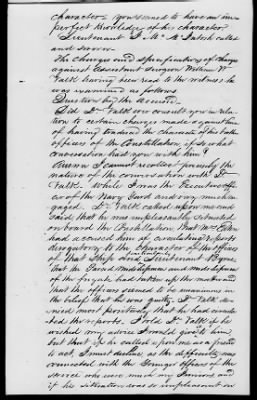 character. You seemed to have an im-
perfect knowledge of his character?
Lieutenant J. Mc. McIntosh called
and sworn.
The charges and specifications of charges
against Assistant Surgeon William
Falk having been read to the witness he
was examined as follows.
Question by the Accused.
Did Dr. Falk ever consult you in rela-
tion to certain charges made against him
of having traduced the character of his fellow
officers of the Constellation, if so what
conversation had you with him?
Answer. I cannot recollect precisely the
nature of the conversation with Dr.
Falk. While I was the Executive Offi-
cer of the Navy Yard and very much en-
gaged, Dr. Falk called upon me and
said, that he was unpleasantly situated
on board the Constellation. That Mr.
had accused him of circulating reports
derogatory to the character of the officers
of that Ship and Lieutenant Byrne
that the Passed Midshipmen and Midshipmen
of the frigate had taken up the matter and
that the officers seemed to be unanimous in
the belief that he was guilty. Dr. Falk de-
nied most positively that he had circula-
ted the reports. I told Dr. Falk if he
wished my advice I would give it him
but that if he called upon me as a friend
to act, I must decline as the difficulty was
connected with the younger officers of the
service who were most my Juniors and
if his situation was so unpleasant on